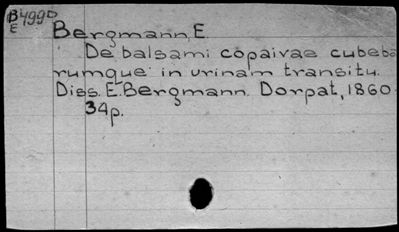 B4990
E
Bergmann, E
De balsami copaivae cubeba
rumque in urinam transitu.
Diss. E. Bergmann. Dorpat, 1860
34p.